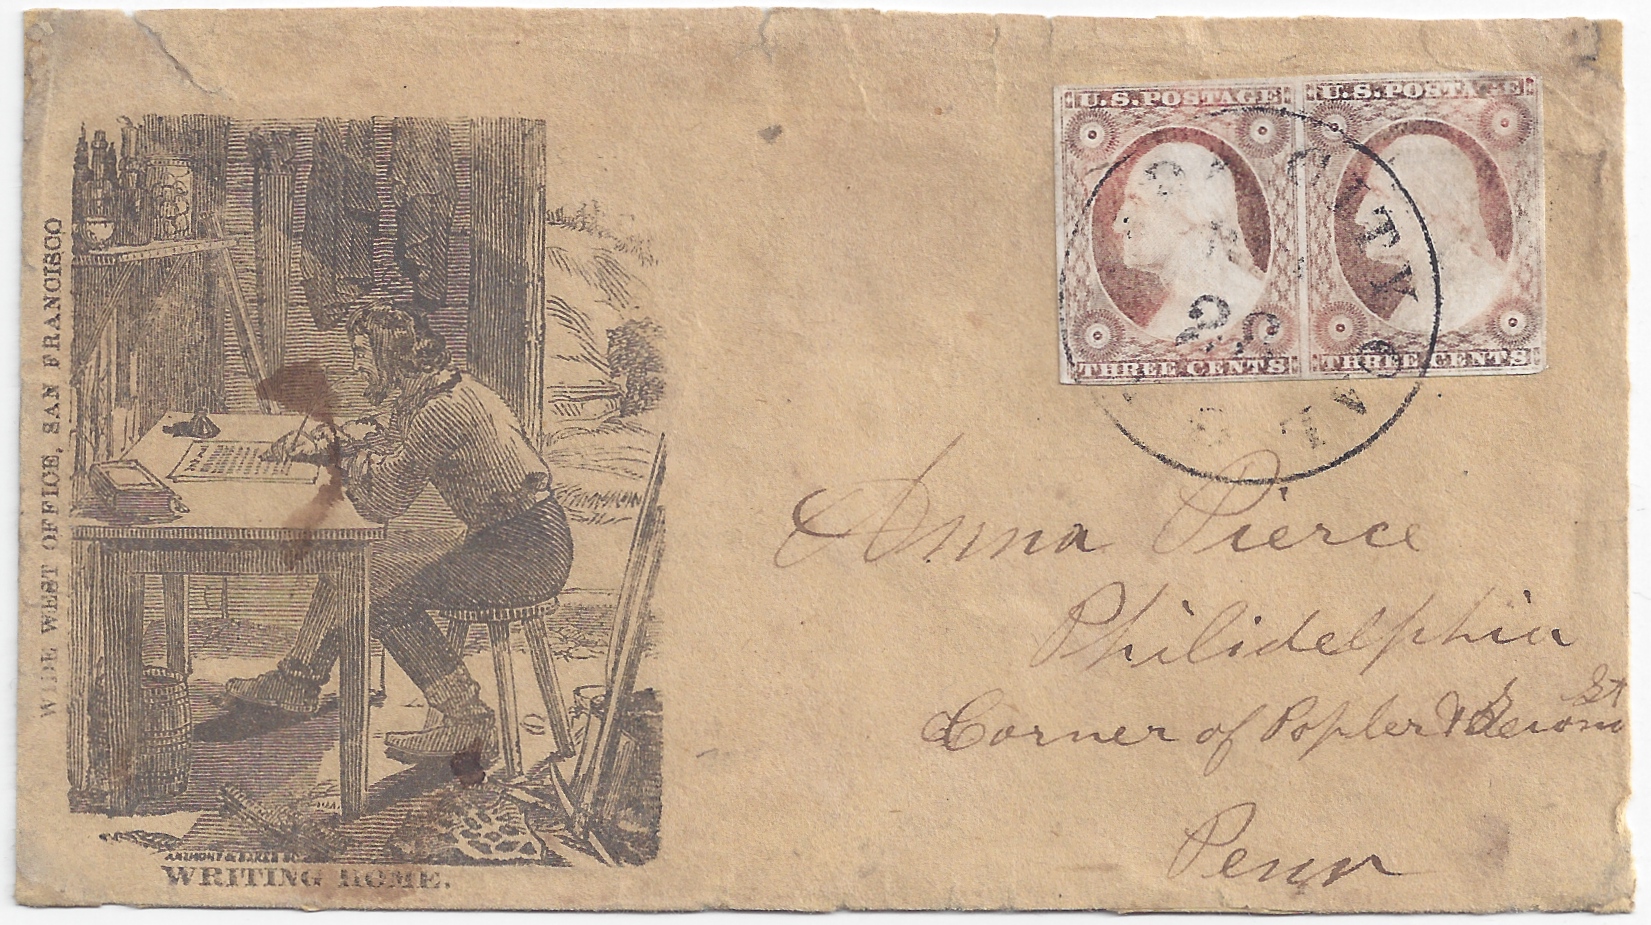 WIDE WEST OFFICE, SAN FRANCISCO
U.S.POSTAGE U.S.POSTAGE
CITY
CAL
THREE CENTS THREE CENTS
Anna Pierce
Philidelphia
Corner of Popler &
St
Penn
ANTHONY & BAKER SC
WRITING HOME.